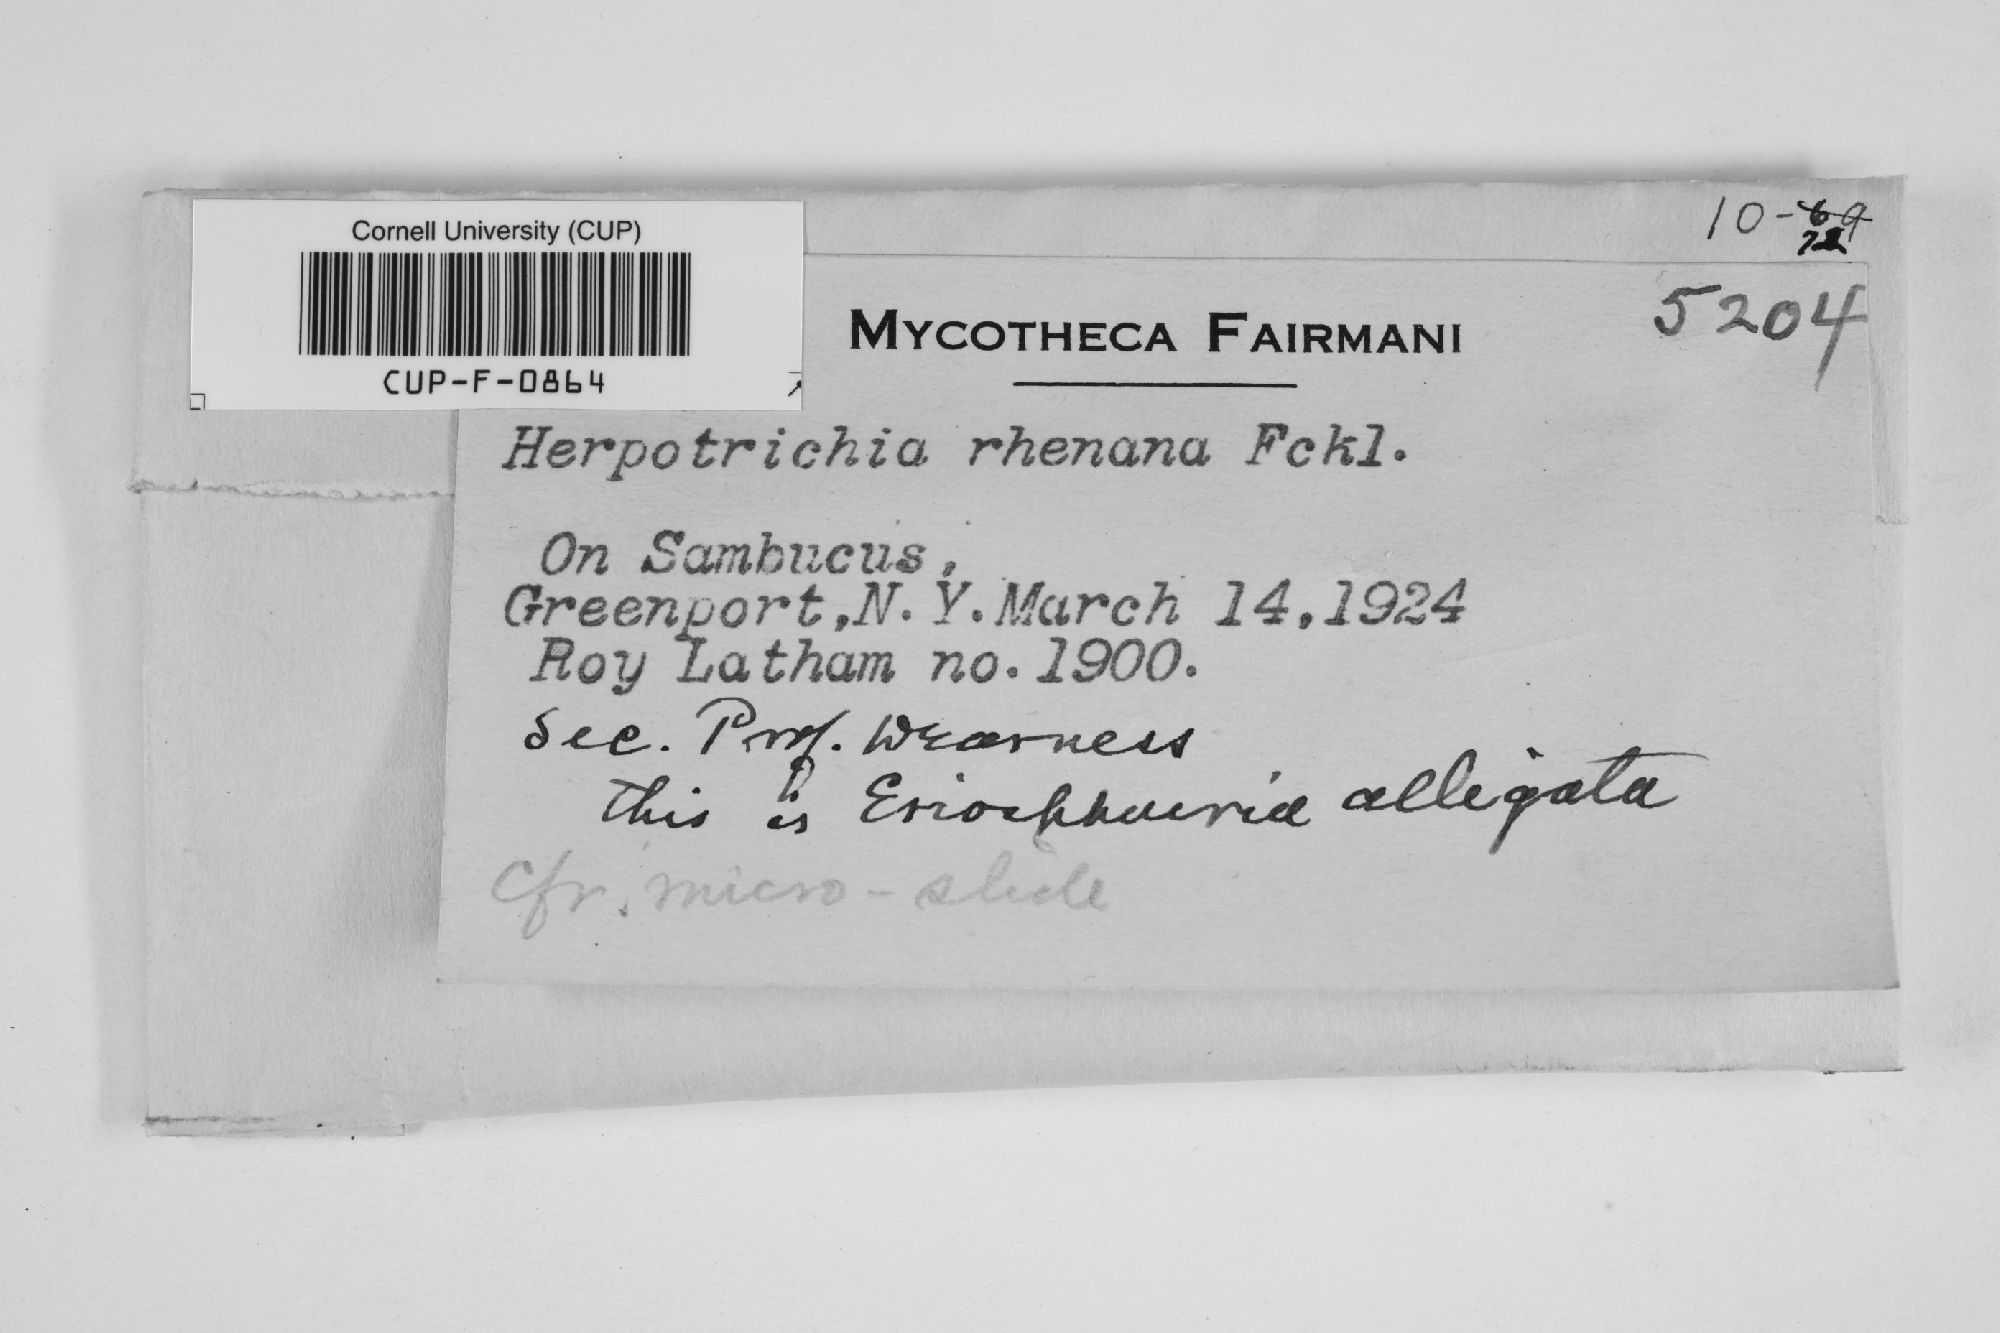 Cornell University (CUP)
CUP-F-0864
10-69
72
5204
MYCOTHECA FAIRMANI
Herpotrichia rhenana Fckl.
On Sambucus,
Greenport, N. Y. March 14, 1924
Roy Latham no. 1900.
Sec. Prof. Dearness
this is Eriosphaeria alligata
Cfr. micro-slide